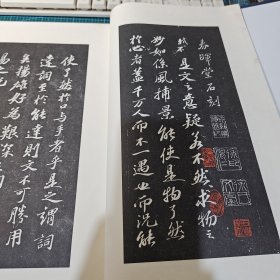 春暉堂石刻
我不是文之意疑若不然求物之
妙如係風捕景能使是物了然
於心者蓋千万人而不一遇也而况能
使了然於口与手者乎是之謂詞
達詞至於能達則文不可勝用
矣揚雄好為艱深
易之